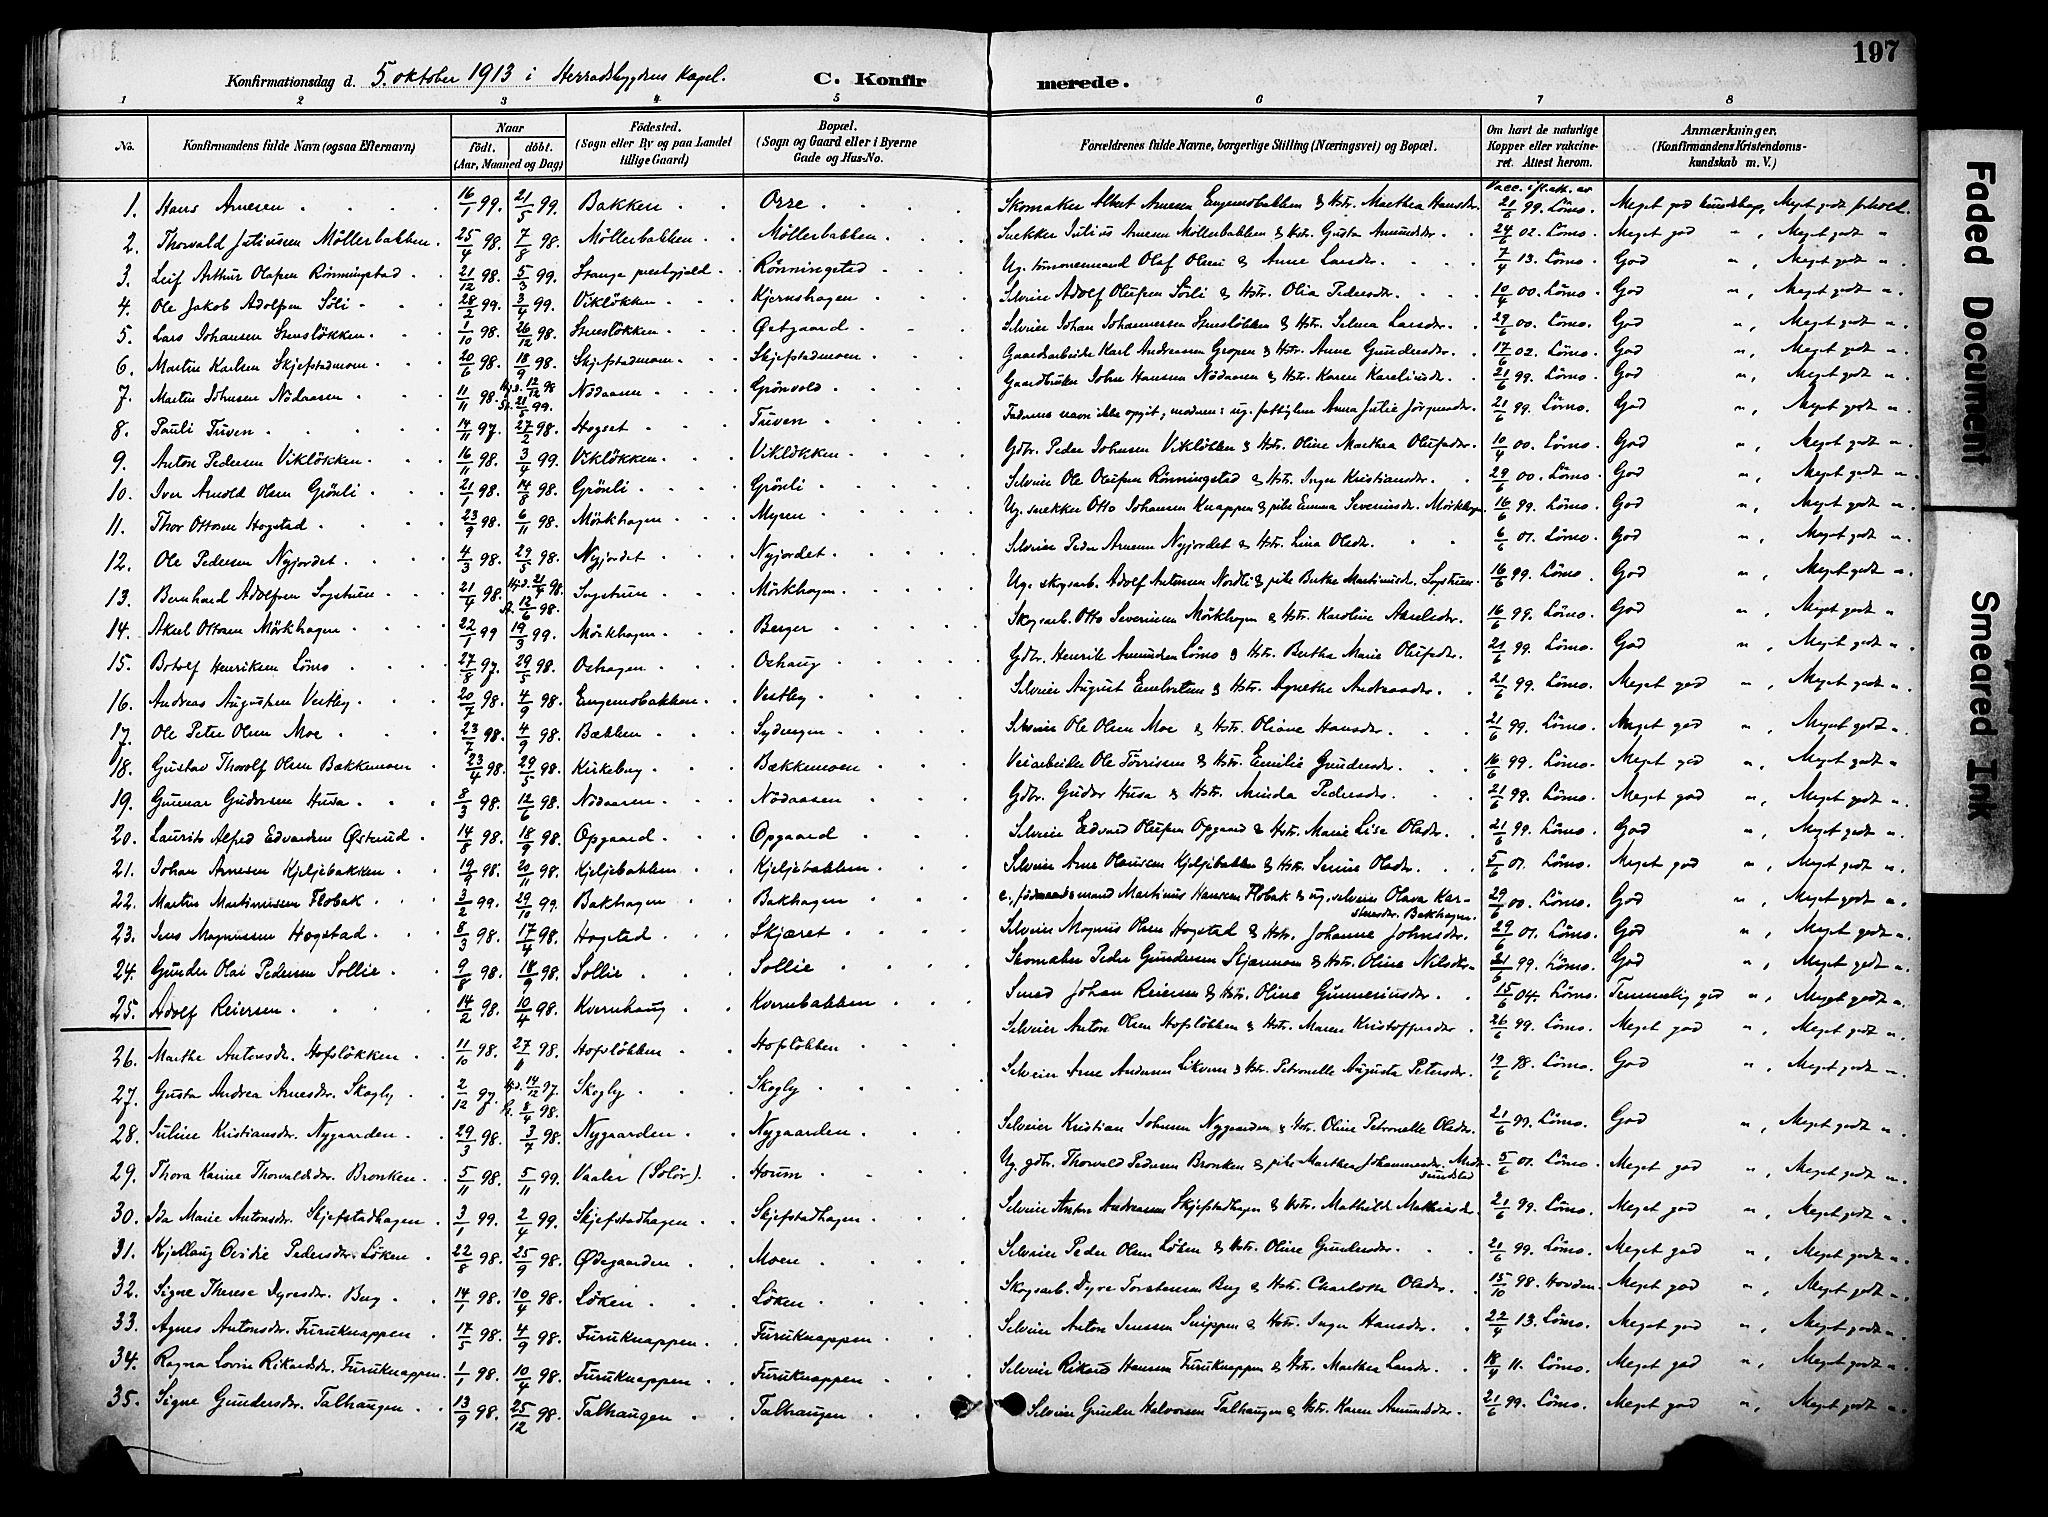 197
Konfirmationsdag d. 5. oktober 1913 i Herradsbygdens Kapel. C. Konfirmerede.
1 2 3 4 5 6 7 8
No. Konfirmandens fulde Navn (ogsaa Efternavn) Naar født. døbt. (Aar, Maaned og Dag) Fødested. (Sogn eller By og paa Landet tillige Gaard) Bopæl. (Sogn og Gaard eller i Byerne Gade og Hus-No. Forældrenes fulde Navne, borgerlige Stilling (Næringsvei) og Bopæl. Om havt de naturlige Kopper eller vaccineret. Attest herom. Anmærkninger. (Konfirmandens Kristendomskundskab m. V.)
1. Hans Arnesen 16/1 99. 21/5 99. Bakken Orre Skomaker Albert Arnesen Engemobakken & Hstr. Marthea Hansdr. Vacc. ifl. att. av 21/6 99. Lömo. Meget god kundskap, Meget godt forhold.
2. Thorvald Juliussen Möllerbakken 25/4 98. 7/8 98. Möllerbakken Möllerbakken Snekker Julius Arnesen Möllerbakken & Hstr. Gusta Amundsdr. 24/6 02. Lömo. Meget god " , Meget godt "
3. Leif Arthur Olafsen Rönningstad 21/12 98. 5/3 99. Stange prestegjeld Rönningstad Ug. tömmermand Olaf Olsen & Anne Larsdr. 7/4 13. Lömo. God " , Meget godt "
4. Ole Jakob Adolfsen Söli 28/2 99. 3/4 99.Viklökken Kjernshagen Selveier Adolf Olufsen Sörli & Hstr. Olia Pedersdr. 10/4 00. Lömo. God " , Meget godt "
5. Lars Johansen Stenslökken 1/10 98. 26/12 98. Stenslökken Østgaard Selveier Johan Johannessen Stenslökken & Hstr. Selma Larsdr. 29/6 00. Lömo. God " , Meget godt "
6. Martin Karlsen Skjefstadmoen 20/6 98. 18/9 98. Skjefstadmoen Skjefstadmoen Gaardarbeider Karl Andreassen Gropen & Hstr. Anne Gundersdr. 17/6 02. Lömo. God " , Meget godt "
7. Martin Johnsen Nödaasen 11/11 98. Hj.d. 12/12 98 St. 21/5 99. Nödaasen Grönvold Gaardbruker John Hansen Nödaasen & Hstr. Karen Kareliusdr. 21/6 99. Lömo. God " , Meget godt "
8. Pauli Tuven 14/11 97. 27/2 98. Hogset Tuven Faderens navn ikke opgit, moderen: ug. fattiglem Anna Julie Jörgensdr. 21/6 99. Lömo. God " , Meget godt "
9. Anton Pedersen Viklökken 16/11 98. 3/4 99. Viklökken Viklökken Gdbr. Peder Johnsen Viklökken & Hstr. Oline Marthea Olufsdr. 10/4 00. Lömo. God " , Meget godt "
10. Iver Arnold Olsen Grönli 21/1 98. 14/8 98. Grönli Grönli Selveier Ole Olufsen Rönningstad & Hstr. Inger Kristiansdr. 29/6 00. Lömo. God " , Meget godt "
11. Thor Ottosen Hogstad 23/9 98. 6/11 98. Mörkhagen Myren Ug. snekker Otto Johansen Knappen & pike Emma Severinsdr. Mörkhagen 16/6 99. Lömo. God " , Meget godt "
12. Ole Pedersen Nyjordet 4/3 98. 29/5 98. Nyjordet Nyjordet Selveier Peder Arnesen Nyjordet & Hstr. Lina Olsdr. 6/6 01. Lömo. God " , Meget godt "
13. Bernhard Adolfsen Sogstuen 21/4 98. Hj.d. 21/4 98. St. 12/6 98. Sogstuen Mörkhagen Ug. skogsarb. Adolf Antonsen Nordli & pike Berthe Martinusdr. Sogstuen 16/6 99. Lömo. God " , Meget godt "
14. Aksel Ottosen Mörkhagen 22/1 99 19/3 99. Mörkhagen Berger Skogsarb. Otto Severinsen Mörkhagen & Hstr. Karoline Akselsdr. 16/6 99. Lömo. God " , Meget godt "
15. Botolf Henriksen Lömo 27/8 97. 29/5 98. Oshagen Oshaug Gdbr. Henrik Amundsen Lömo & Hstr. Bertha Marie Olufsdr. 21/6 99. Lömo. God " , Meget godt "
16. Andreas Augustsen Vestby 20/7 98. 4/9 98. Engemobakken Vestby Selveier August Embretsen & Hstr. Agnethe Andreasdr. 21/6 99. Lömo. Meget god " , Meget godt "
17. Ole Peter Olsen Moe 23/7 98. 4/9 98. Bækken Sydengen Selveier Ole Olsen Moe & Hstr. Oliane Hansdr. 21/6 99. Lömo. Meget god " , Meget godt "
18. Gustav Thorolf Olsen Bækkemoen 23/4 98. 29/5 98. Kirkeby Bækkemoen Veiarbeider Ole Törrisen & Hstr. Emilie Gundersdr. 16/6 99. Lömo. Meget god " , Meget godt "
19. Gunnar Gudorsen Husa 8/3 98. 12/6 98. Nödaasen Nödaasen Gdbr. Gudor Husa & Hstr. Minda Pedersdr. 21/6 99. Lömo. Meget god " , Meget godt "
20. Laurits Alfred Edvardsen Østerud 14/8 98. 18/9 98. Opgaard Opgaard Selveier Edvard Olufsen Opgaard & Hstr. Marie Lise Olsdr. 21/6 99. Lömo. God " , Meget godt "
21. Johan Arnesen Kjeljebakken 19/9 98. 20/11 98. Kjeljebakken Kjeljebakken Selveier Arne Olaussen Kjeljebakken & Hstr. Senine Olsdr. 5/6 01. Lömo. Meget god " , Meget godt "
22. Martin Martinussen Flobak 3/2 99. 29/10 99. Bakhagen Bakhagen e. föderaadsmand Martinus Hansen Flobak & ug. selveier Olava Karstensdr. Bakhagen. 29/6 00. Lömo. God " , Meget godt "
23. Jens Magnussen Hogstad 8/3 98. 17/4 98. Hogstad Skjæret Selveier Magnus Olsen Hogstad & Hstr. Johanne Johnsdr. 29/6 01. Lömo. God " , Meget godt "
24. Gunder Olai Pedersen Sollie 9/8 98. 18/9 98. Sollie Sollie Skomaker Peder Gundersen Skjærmoen & Hstr. Oline Nilsdr. 21/6 99. Lömo. God " , Meget godt "
25. Adolf Reiersen 14/2 98. 10/4 98. Kvernhaug Kvernbakken Smed Johan Reiersen & Hstr. Oline Gunneriusdr. 15/6 04. Lömo. Temmelig god " , Meget godt "
26. Marthe Antonsdr. Hofslökken 11/10 98. 27/11 98. Hofslökken Hofslökken Selveier Anton Olsen Hofslökken & Hstr. Maren Kristoffersdr. 26/6 99. Lömo. Meget god " , Meget godt "
27. Gusta Andrea Arnesdr. Skogly 2/12 97. Hj.d. 14/12 97. St. 8/4 98. Skogly Skogly Selveier Arne Andersen Likven & Hstr. Petronelle Augusta Petersdr. 19/6 98. Lömo. God " , Meget godt "
28. Juline Kristiansdr. Nygaarden 29/3 98. 3/7 98. Nygaarden Nygaarden Selveier Kristian Johnsen Nygaarden & Hstr. Oline Petronelle Olsdr. 21/6 99. Lömo. God " , Meget godt "
29. Thora Karine Thorvaldsdr. Bronken 5/11 98. 5/11 99. Vaaler (Solör) Houm Ug. gdbr. Thorvald Pedersen Bronken & pike Marthea Johannesdr. Medtsundstad 5/6 01. Lömo. Meget god " , Meget godt "
30. Ida Marie Antonsdr. Skjefstadhagen 3/1 99. 2/4 99. Skjefstadhagen Skjefstadhagen Selveier Anton Andreassen Skjefstadhagen & Hstr. Mathilde Mathiasdr. 21/6 99. Lömo. Meget god " , Meget godt "
31. Kjellaug Ovidie Pedersdr. Löken 22/8 98. 25/9 98. Ødegaarden Moen Selveier Peder Olsen Löken & Hstr. Oline Gundersdr. 21/6 99. Lömo. Meget god " , Meget godt "
32. Signe Therese Dyresdr. Berg 14/1 98. 10/4 98. Löken Löken Skogsarb. Dyre Torstensen Berg & Hstr. Charlotte Olsdr. 15/10 98. Hovden. Meget god " , Meget godt "
33. Agnes Antonsdr. Furuknappen 17/5 98. 4/9 98. Furuknappen Furuknappen Selveier Anton Jenssen Snippen & Hstr. Inger Hansdr. 22/4 13. Lömo. Meget god " , Meget godt "
34. Ragna Lovise Rikardsdr. Furuknappen 1/1 98. 10/4 98. Furuknappen Furuknappen Selveier Rikard Hansen Furuknappen & Hstr. Marthea Larsdr. 18/4 11. Lömo. Meget god " , Meget godt "
35. Signe Gundersdr. Talhaugen 13/9 98. 25/12 98. Talhaugen Talhaugen Selveier Gunder Halvorsen Talhaugen & Hstr. Karen Amundsdr. 21/6 99. Lömo. Meget god " , Meget godt "
Faded Document
Smeared Ink